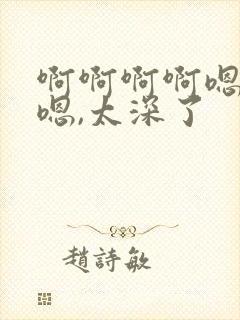 啊啊啊啊嗯
嗯,太深了
趙詩敏